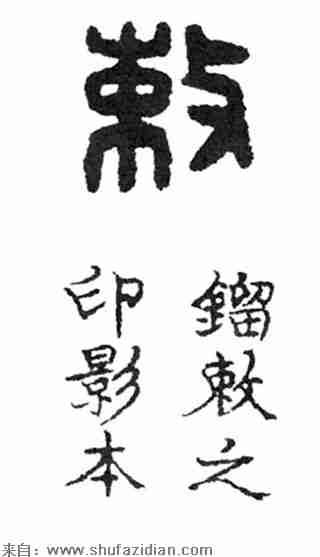 敕
鎦敕之
印影本
来自：www.shufazidian.com